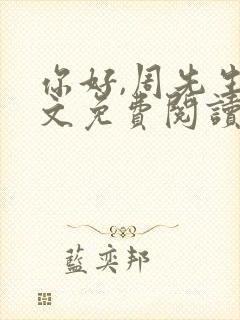 你好,周先生
文免費閱讀
藍奕邦